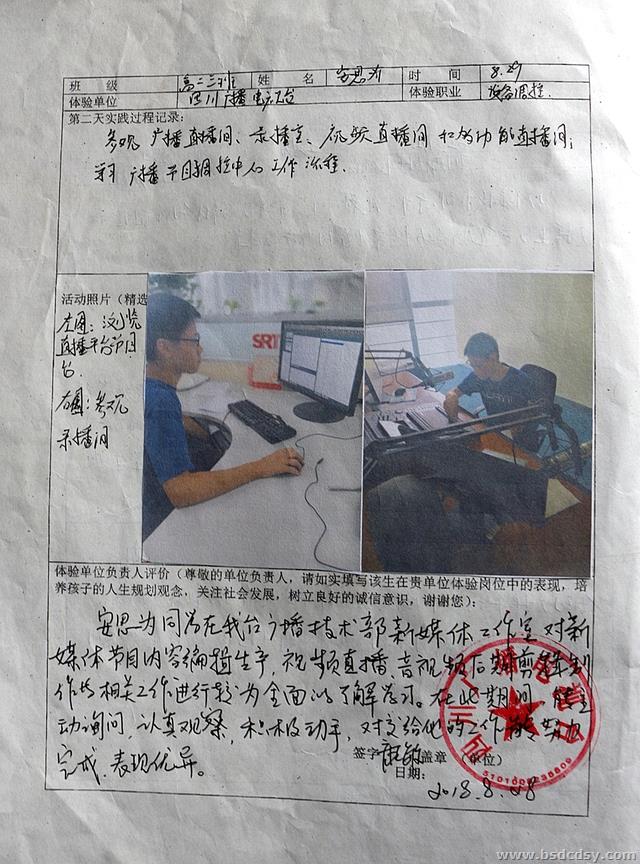 班 级 高二三班 姓 名 安思为 时 间 8.29
体验单位 四川广播电视台 体验职业 设备调控
第二天实践过程记录:
参观广播直播间、录播室、视频直播间和多功能直播间;
学习广播节目调控中心工作流程.
活动照片（精选
左图：浏览
直播平台节目
台.
右图：参观
录播间
SRT
体验单位负责人评价（尊敬的单位负责人，请如实填写该生在贵单位体验岗位中的表现，培
养孩子的人生规划观念，关注社会发展，树立良好的诚信意识，谢谢您）：
安思为同学在我台广播技术部新媒体工作室对新
媒体节目内容编辑生产，视频直播、音视频后期剪辑制
作等相关工作进行较为全面的了解学习。在此期间，能主
动询问，认真观察，积极动手，对交给他的工作能努力
完成，表现优异。
签字 盖章 （单位）
日期：
2018.8.28
5101008235809
www.bsdcdsy.com